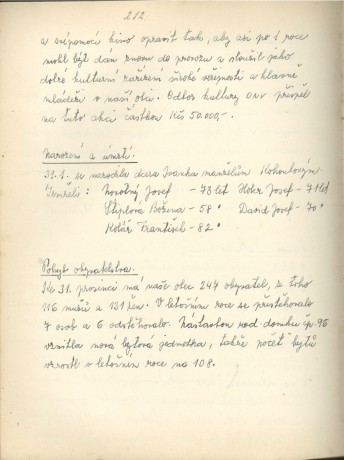 212
a svépomocí kino opravit tak, aby asi po 1 roce
mohl být dán znovu do provozu a sloužil jako
dobré kulturní zařízení široké veřejnosti a hlavně
mládeži v naší obci. Odbor kultury ONV přispěl
na tuto akci částkou Kčs 50.000,-.
Narození a úmrtí.
31.1. se narodila dcera Ivanka manželům Kohoutovým
Zemřeli: Novotný Josef - 78 let Josef - 71 let
Štiplová Božena - 58 " David Josef - 70 "
Kolář František - 82 "
Pohyb obyvatelstva.
Ke 31. prosinci má naše obec 247 obyvatel, z toho
116 mužů a 131 žen. V letošním roce se přistěhovalo
7 osob a 6 odstěhovalo. Nástavbou rod. domku čp. 96
vznikla nová bytová jednotka, takže počet bytů
vzrostl v letošním roce na 108.